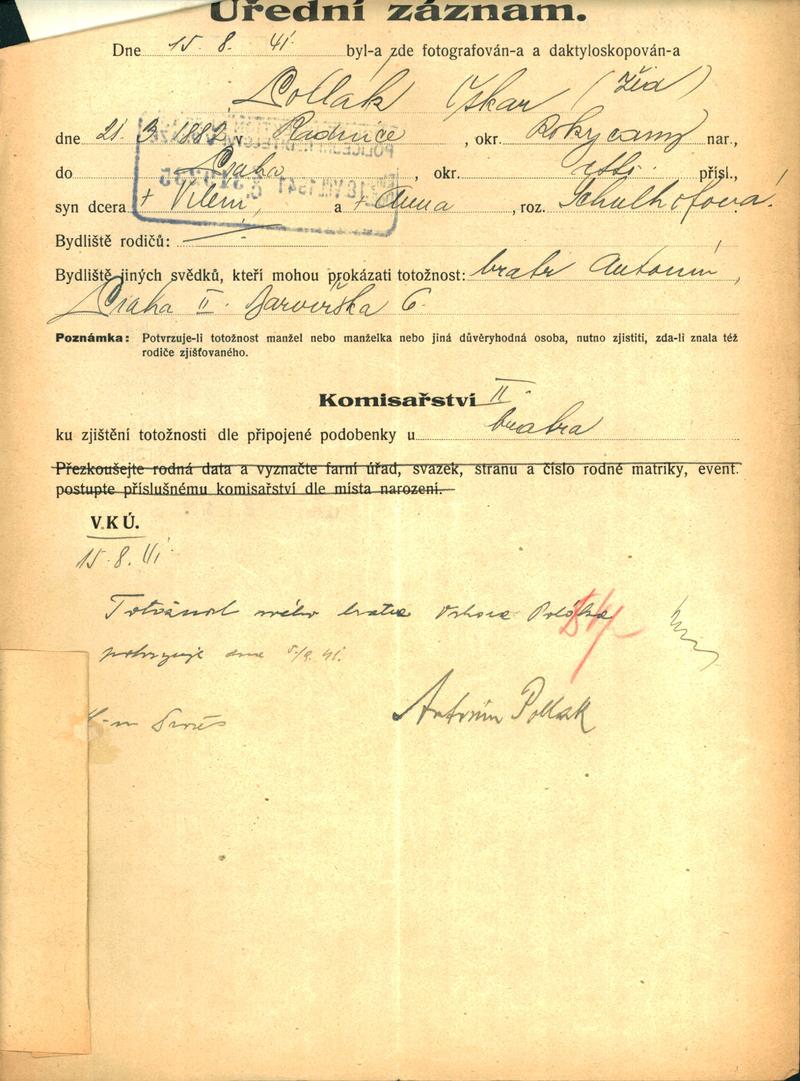 Úřední záznam.
Dne 15. 8. 41. byl-a zde fotografován-a a daktyloskopován-a
Pollak Oskar (Žid)
dne 21. 3. 1882 v Radnice, okr. Rokycany nar.,
do Praha, okr. přísl.,
syn dcera + Vilém, a + Anna, roz. Schulhofova!
Bydliště rodičů:
Bydliště jiných svědků, kteří mohou prokázati totožnost: bratr Antonín,
Praha II. 6.
Poznámka: Potvrzuje-li totožnost manžel nebo manželka nebo jiná důvěryhodná osoba, nutno zjistiti, zda-li znala též
rodiče zjišťovaného.
Komisařství II.
ku zjištění totožnosti dle připojené podobenky u bratra
Přezkoušejte rodná data a vyznačte farní úřad, svazek, stranu a číslo rodné matriky, event.
postupte příslušnému komisařství dle místa narození.
V.K Ú.
15. 8. 41.
Totožnost mého bratra Oskara
potvrzuje dne 5/9. 41.
Antonín Pollak